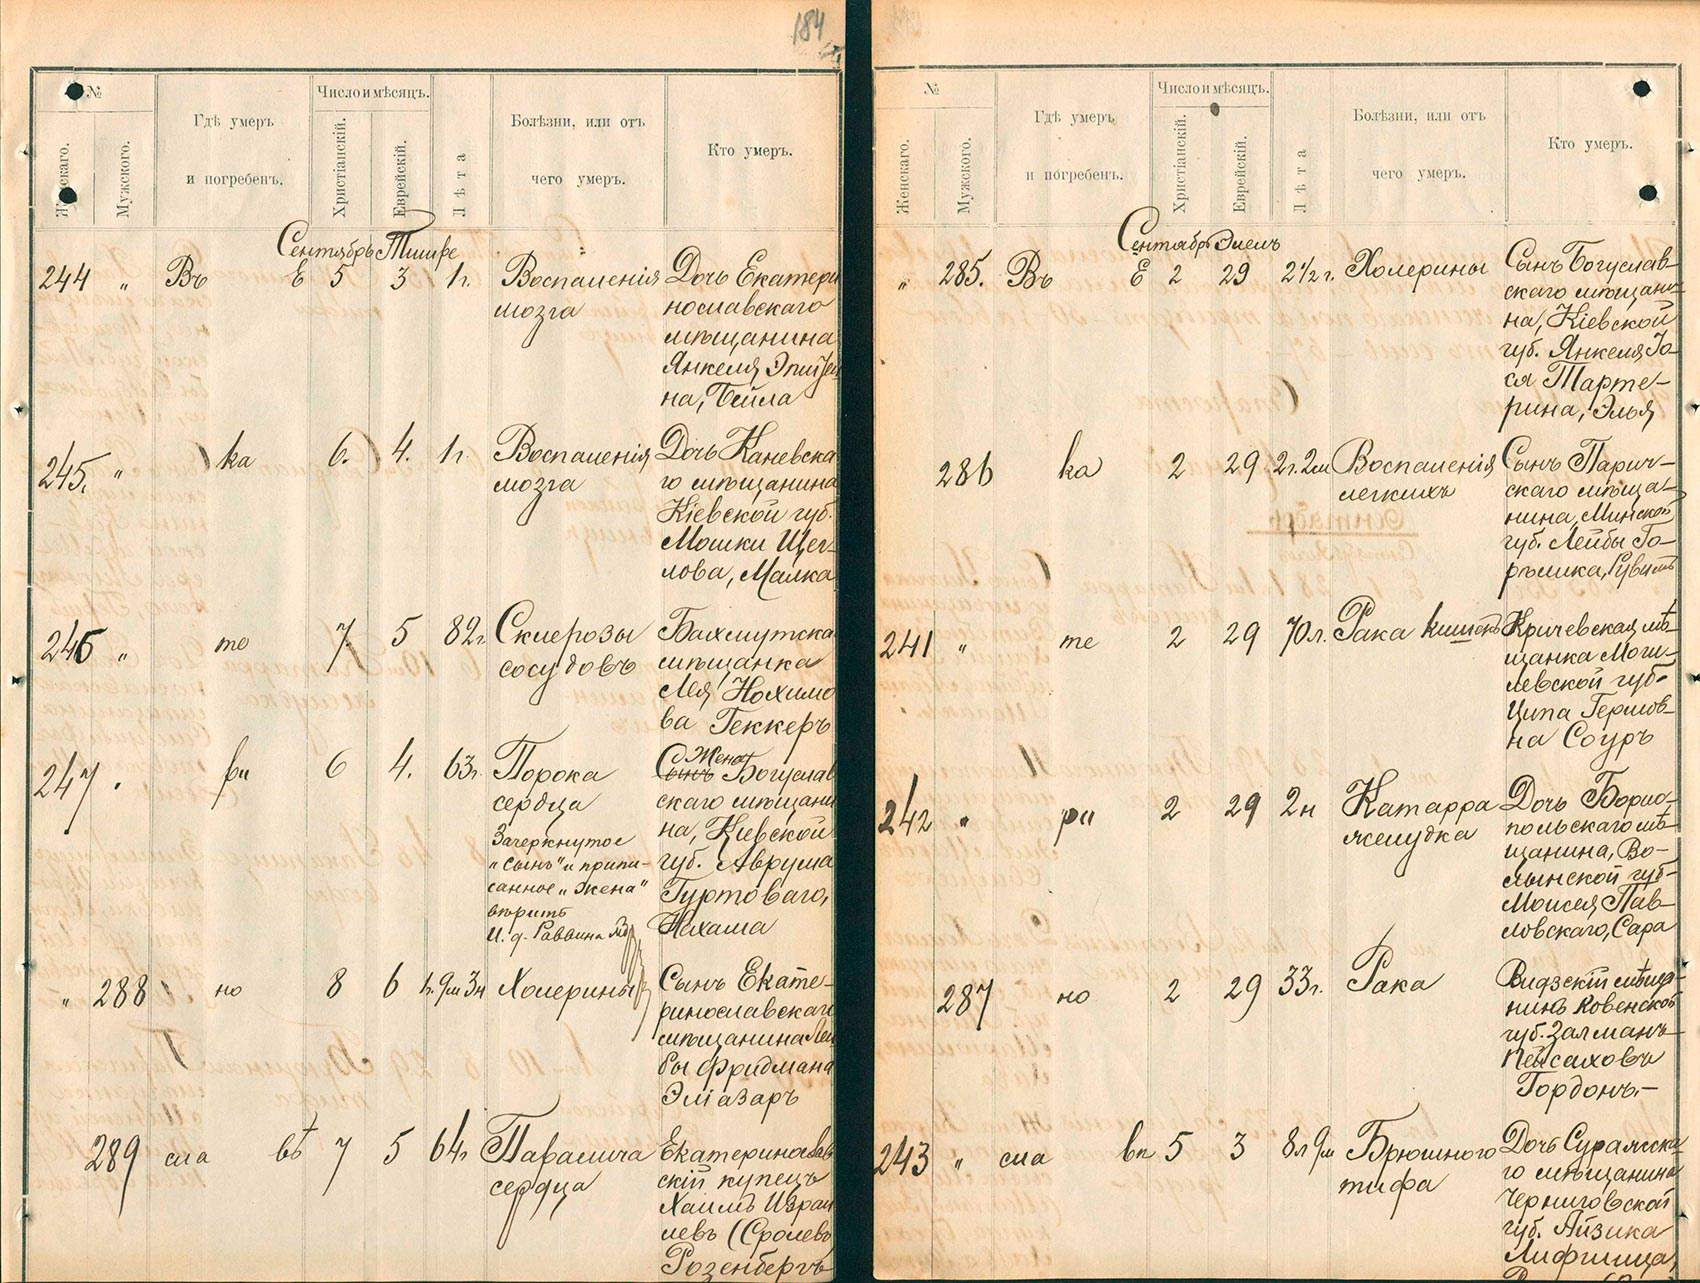 184
№
Женскаго.
Мужского.
Гдѣ умеръ
и погребенъ.
Число и мѣсяцъ.
Христіанскій.
Еврейскій.
Лѣта
Болѣзни, или отъ
чего умеръ.
Кто умеръ.
Сентябрь Тишре
244 " Въ Е 5 3 1 г. Воспаленія
мозга
Дочь Екатери
нославскаго
мѣщанина
Янкеля
на, Бейла
245. " ка 6. 4. 1 г. Воспаленія
мозга
Дочь Каневска
го мѣщанина
Кіевской губ.
Мошки Щег-
лова, Малка
246 " те 7 5 82 г. Склерозы
сосудовъ
Бахмутска
мѣщанка
Лея Нохимо
ва Геккеръ
247 " ри 6 4. 63 г. Порока
сердца
Зачеркнутое
"сынъ" и припи-
санное "жена"
вѣрить
И. д. Раввина
Жена
Сынъ Богуслав
скаго мѣщани
на, Кіевской
губ. Аврума
Гуртоваго,
Нахама
" 288 но 8 6 1 г. 9 м 3 н Холерины
Сынъ Екате-
ринославскаго
мѣщанина Лей
бы Фридмана
Эліазаръ
289 сла вѣ 7 5 64 г Паралича
сердца
Екатеринослав
скій купецъ
Хаимъ Израи
левъ (Сролевъ)
Розенбергъ
№
Женскаго.
Мужского.
Гдѣ умеръ
и погребенъ.
Число и мѣсяцъ.
Христіанскій.
Еврейскій.
Лѣта
Болѣзни, или отъ
чего умеръ.
Кто умеръ.
Сентябрь Элелъ
" 285. Въ Е 2 29 2 1/2 г. Холерины
Сынъ Богуслав-
скаго мѣщани-
на, Кіевской
губ. Янкеля Іо-
ся Тарте-
рина, Элья
286 ка 2 29 2 г. 2 м Воспаленія
легкихъ
Сынъ Парич-
скаго мѣща-
нина, Минской
губ. Лейбы Го-
рѣлика, Рувимъ
241 " те 2 29 70 л. Рака кишекъ
Кричевская мѣ-
щанка Моги-
левской губ.
Ципа Гершов-
на Соуръ
242 " ри 2 29 2 н Катарра
желудка
Дочь Борио-
польскаго мѣ-
щанина, Во-
лынской губ.
Моисея Пав-
ловскаго, Сара
287 но 2 29 33 г. Рака
Видзскій мѣща-
нинъ Ковенской
губ. Залманъ
Пейсаховъ
Гордонъ.-
243 " сла вѣ 5 3 8 л 9 м Брюшного
тифа
Дочь Суражска-
го мѣщанина
Черниговской
губ. Айзика
Лифшица,